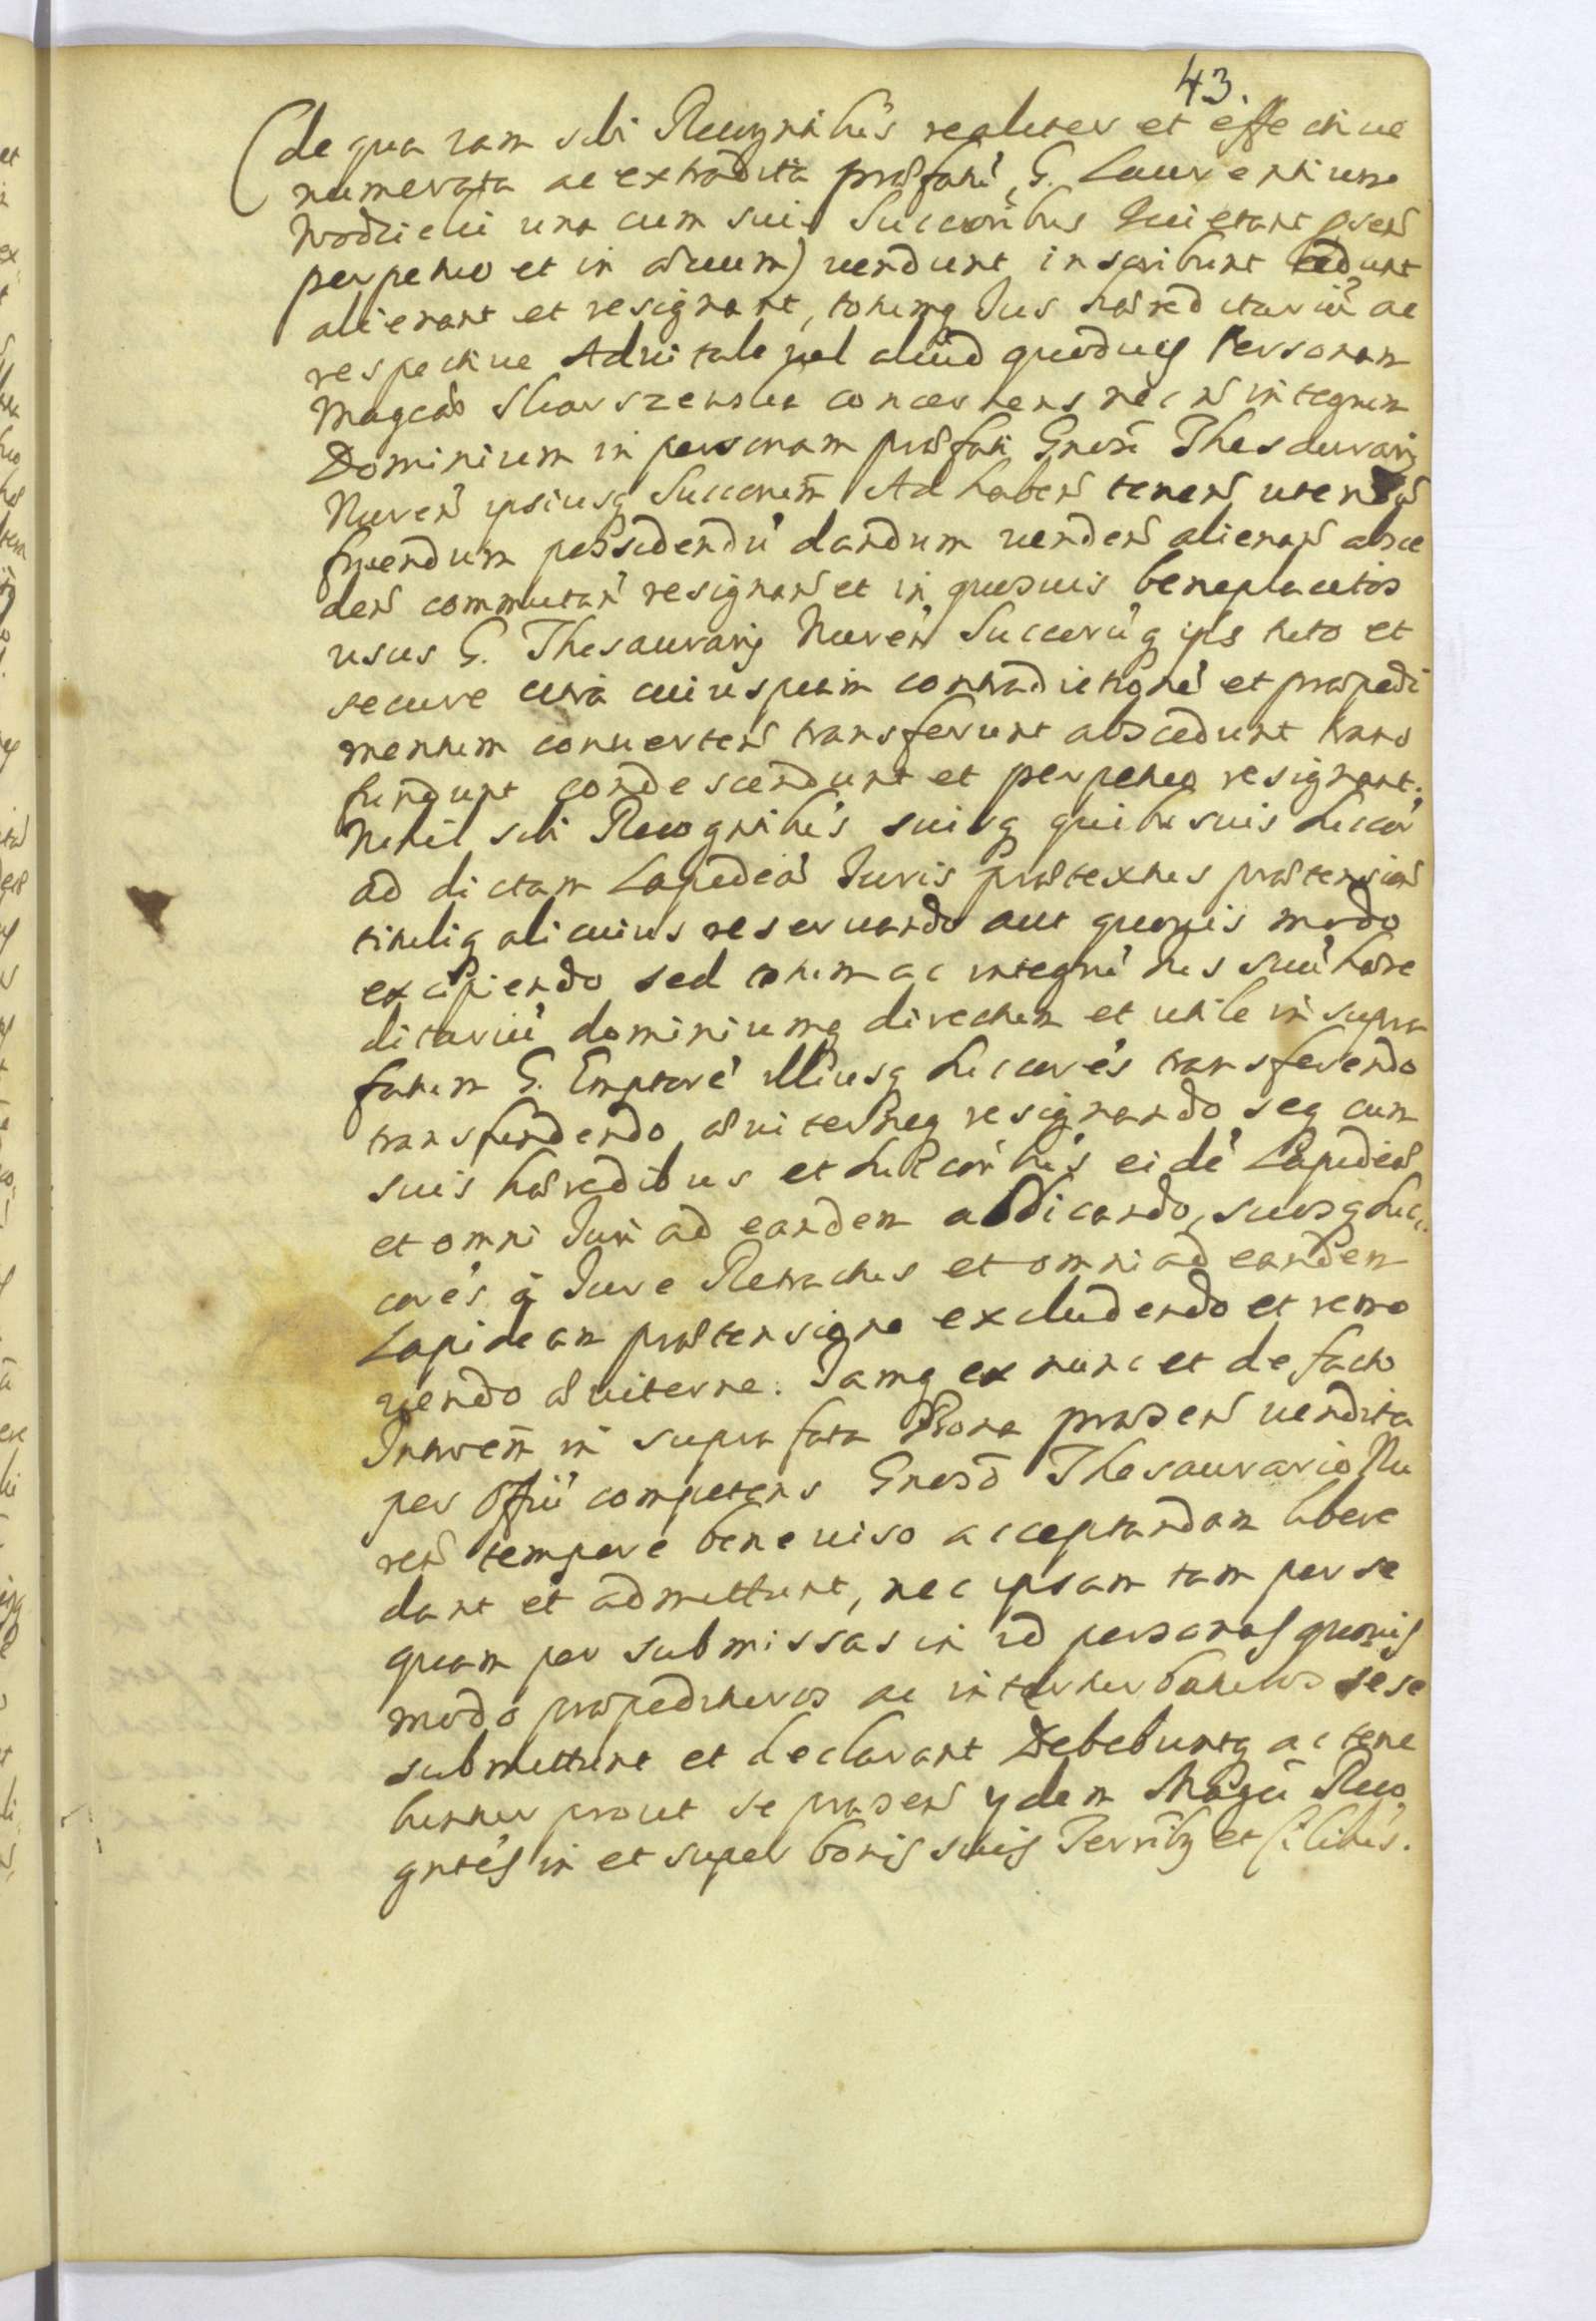 43.
(de qua tam sibi Recognibus realiter et effective
numerata ac extradita præfatū G. Laurentium
Wodzicki una cum suis Succoribus Quietant præsen
perpetuo et in ævum) vendunt inscribunt cedunt
alienant et resignant, totumq Ius hæreditariū ac
respective Advitale vel aliud quodvis Personam
Magcæ Skarszewska concernens nec n integrum
Dominium in personam præfati Gnesi Thesaurarij
Nuren ipsiusq Succorum Ad haben tenen uten
fruendum possidendū dandum venden alienan absce
den commutan resignan et in quosuis beneplacitos
usus G. Thesaurarij Nuren Succorūq ips tuto et
secure citra cuiuspiam contradictionē et præpedi
mentum converten transferunt abscedunt trans
fundunt condescendunt et perpetuo resignant.
Nihil sibi Recognibus suisq quibusuis Succor
ad dictam Lapideā Iuris prætextus prætension
tituliq alicuius reservando aut quovis modo
excipiendo sed totum ac integrū Ius suū hære
ditariū dominiumq directum et utile in supra
fatum G. Emptorē illiusq Succorēs transferendo
transfundendo æviterneq resignando seq cum
suis hæredibus et Succoribus eidē Lapideæ
et omni Iuri ad eandem abdicando, suosq Suc
corēs à Iure Retractus et omni ad eandem
Lapideam prætensione excludendo et remo
vendo æviterne. Iamq ex nunc et de facto
Intrōm in suprafata Bona præsen vendita
per Offiū competens Gneso Thesaurario Nu
ren tempore bene viso acceptandam libere
dant et admittunt, nec ipsam tam per se
quam per submissas in id personas quovis
modo præpedituros ac inturbaturos sese
submittunt et declarant Debebuntq ac tene
buntur prout se præsen ydem Magci Reco
gntes in et super bonis suis Terribq et Civilibus.